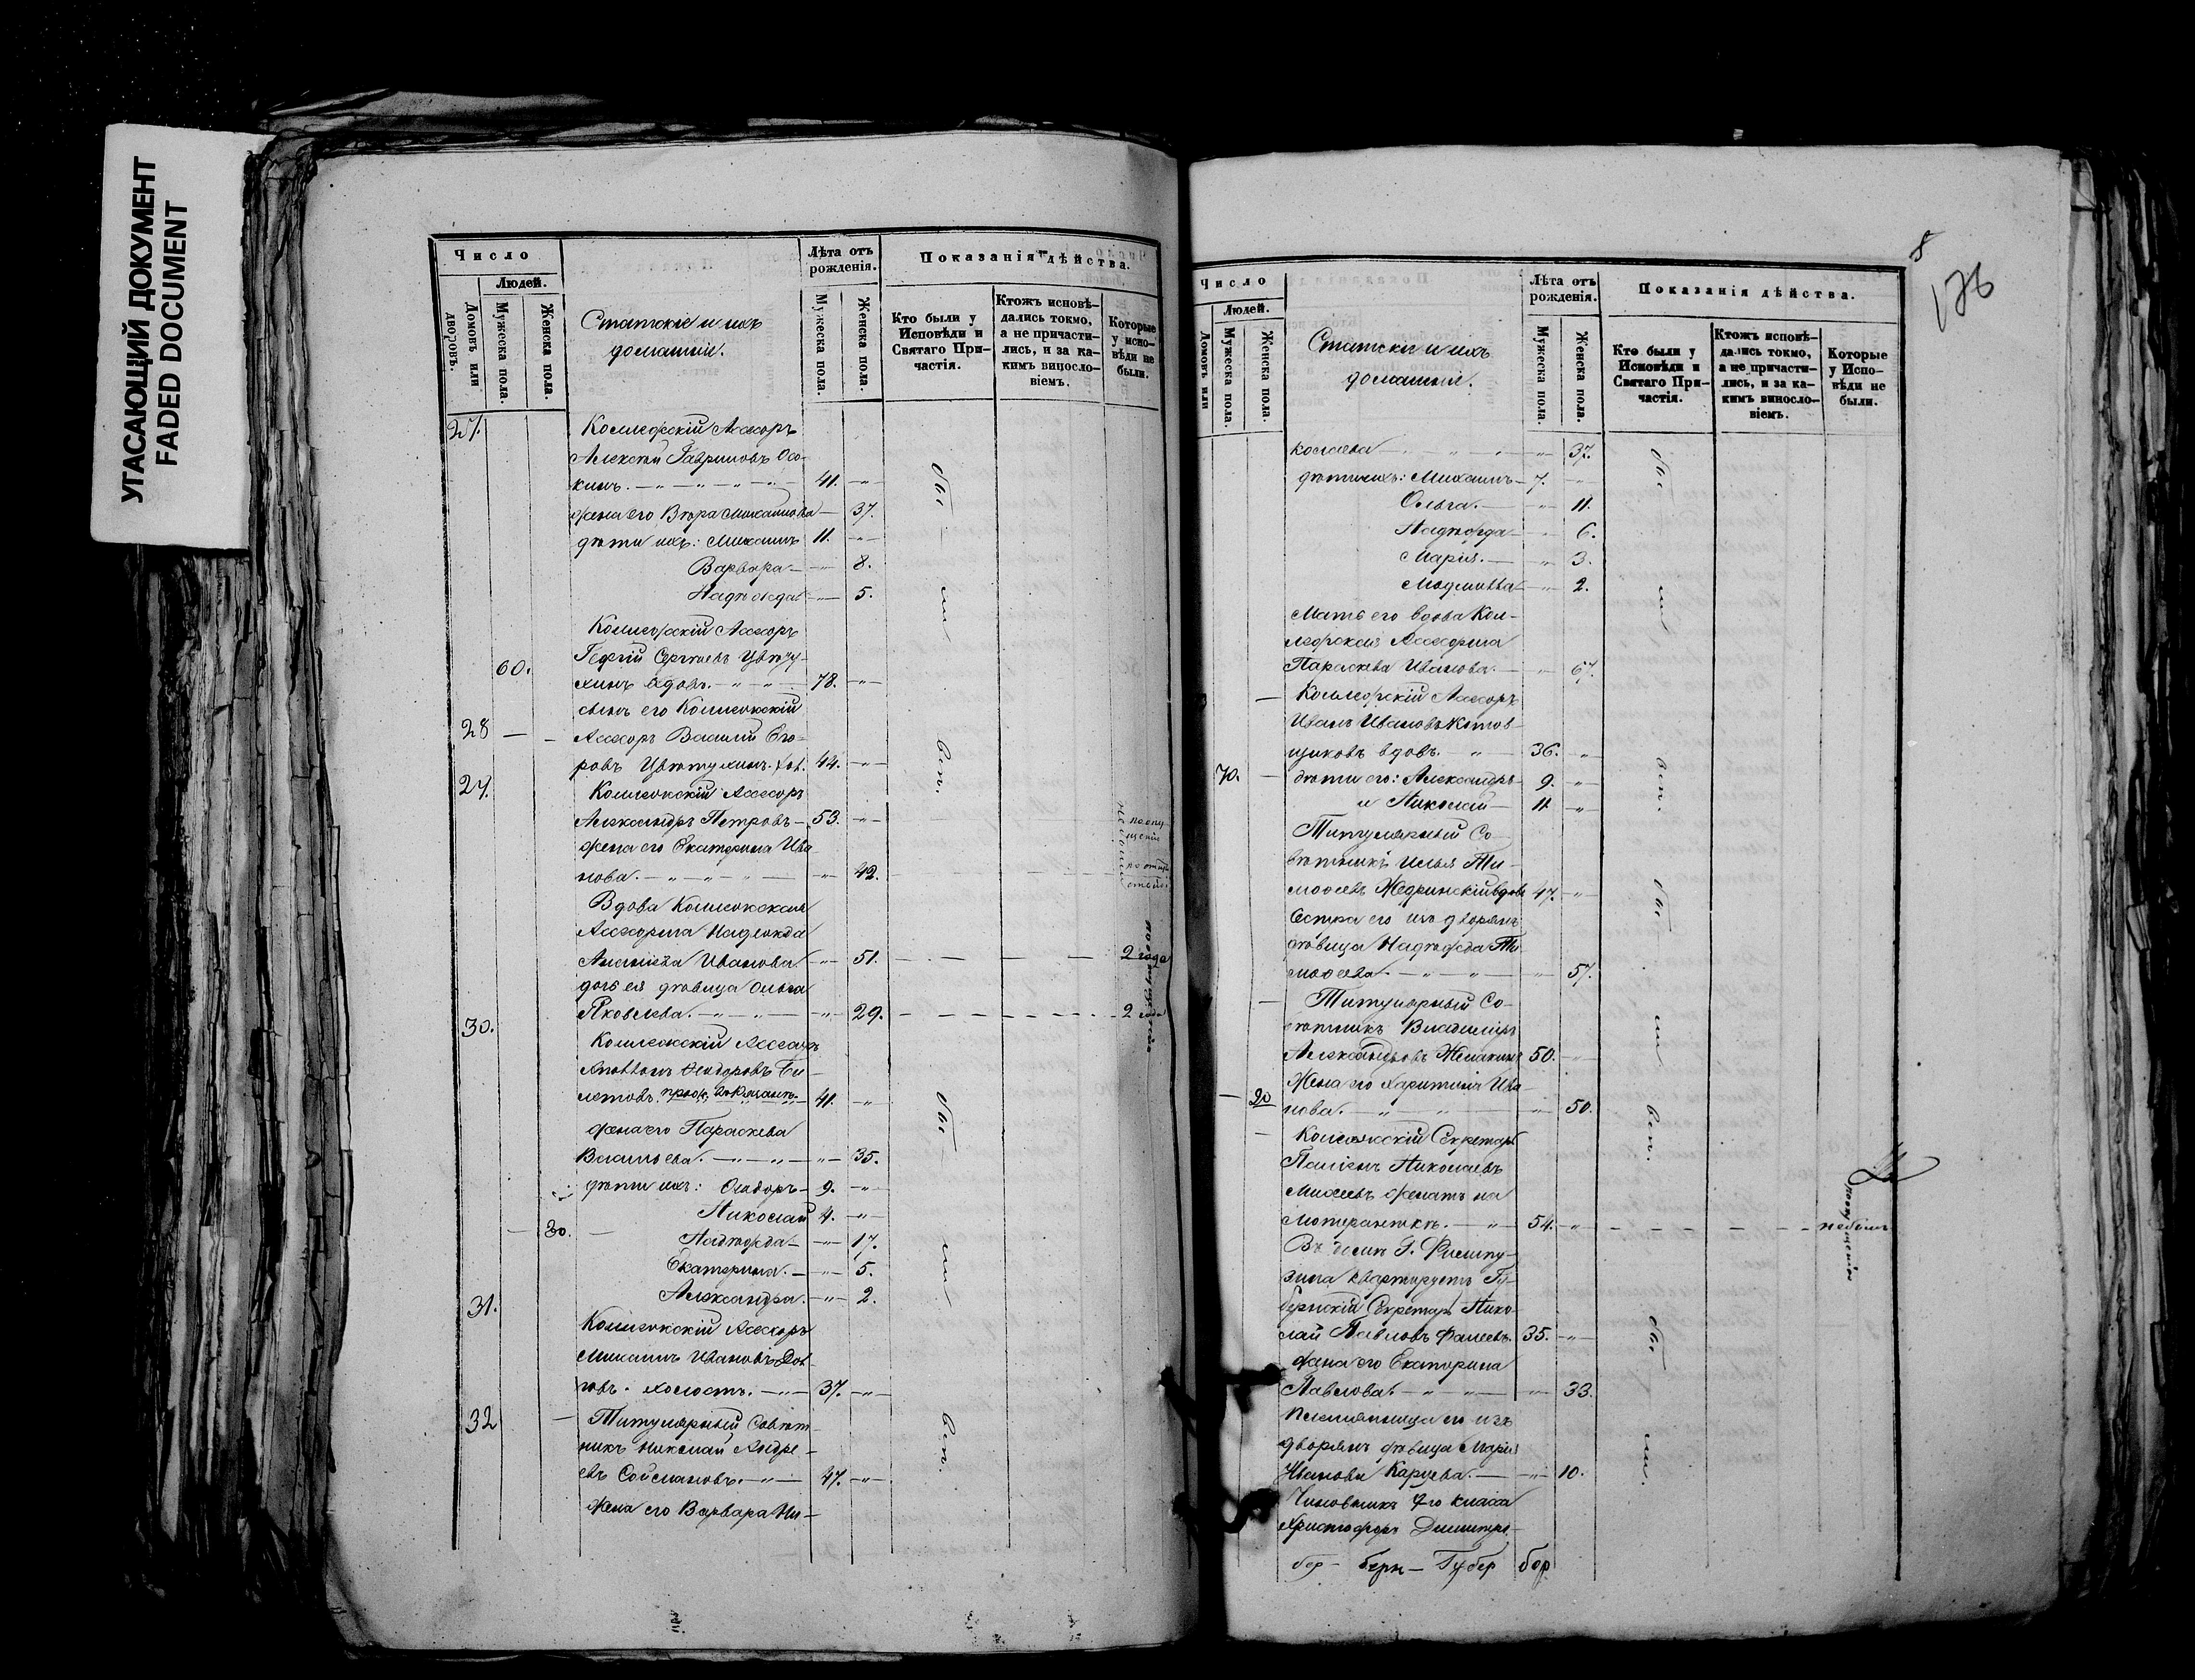 УГАСАЮЩИЙ ДОКУМЕНТ
FADED DOCUMENT
Число
Людей.
Домовъ или дворовъ.
Мужеска пола.
Женска пола.
Статскіе и ихъ
домашніе.
Лѣта отъ
рожденія.
Мужеска пола.
Женска пола.
Показанія дѣйства.
Кто были у
Исповѣди и
Святаго При-
частія.
Ктожъ исповѣ-
дались токмо,
а не причасти-
лись, и за ка-
кимъ винсло-
віемъ.
Которые
у испо-
вѣди не
были.
27. Коллежскій Ассесоръ
Алексѣй Гавриловъ Осо-
кинъ. 41.
жена его Вѣра Михайлова 37.
дѣти ихъ: Михаилъ 11.
Варвара 8.
Надежда 5.
Коллежскій Ассесоръ
Георгій Сергѣевъ Цвѣту-
60. хинъ вдовъ. 78.
сынъ его Коллежскій
28 Ассесоръ Василій Его-
ровъ Цвѣтухинъ. хол. 44.
29. Коллежскій Ассесоръ
Александръ Петровъ 53.
жена его Екатерина Ива
нова. 42.
Вдова Коллежская
Ассесорша Надежда
Иванова 51. 2 года
дочь ея дѣвица Ольга
Яковлева. 29. 2 года
30. Коллежскій Ассесоръ
Ѳеодоровъ Би-
летовъ. 41.
жена его Параскева
Васильева. 35.
дѣти ихъ: Ѳеодоръ 9.
Николай 4.
30. Надежда 17.
Екатерина. 5.
Александра. 2.
31. Коллежскій Ассесоръ
Михаилъ Ивановъ Дол-
говъ. холостъ. 37.
32 Титулярный Совѣт-
никъ Николай Андре-
евъ Соймановъ. 47.
Жена его Варвара Ни-
8
176
Число
Людей.
Домовъ или
Мужеска пола.
Женска пола.
Статскіе и ихъ
домашніе.
Лѣта отъ
рожденія.
Мужеска пола.
Женска пола.
Показанія дѣйства.
Кто были у
Исповѣди и
Святаго При-
частія.
Ктожъ исповѣ-
дались токмо,
а не причасти-
лись, и за ка-
кимъ винсло-
віемъ.
Которые
у Испо-
вѣди не
были.
колаева 37.
дѣти ихъ: Михаилъ 7.
Ольга. 11.
Надежда 6.
Марія. 3.
Людмилла 2.
Мать его вдова Кол-
лежская Ассесорша
Параскева Иванова. 67.
Коллежскій Ассесоръ
Иванъ Ивановъ Котов-
щиковъ вдовъ. 36.
70. дѣти его: Александръ 9.
и Николай 11.
Титулярный Со-
вѣтникъ Илья Ти-
моѳеевъ Жедринскій вдовъ 47.
Сестра его изъ дворянъ
дѣвица Надежда Ти-
моѳеева. 57.
Титулярный Со-
вѣтникъ Владиміръ
Александровъ 50.
Жена его Харитина Ива
20 нова. 50.
Коллежскій Секретарь
Николаевъ
Михеевъ женатъ на
Лютеранкѣ. 54. небылъ
Въ домѣ Г.
квартируетъ Гу-
бернскій Секретарь Нико-
лай Павловъ Фалеевъ. 35.
жена его Екатерина
Павлова. 33.
племянница его изъ
дворянъ дѣвица Марія
Иванова Карцева. 10.
Чиновникъ 7го класса
Христофоръ Димитрі-